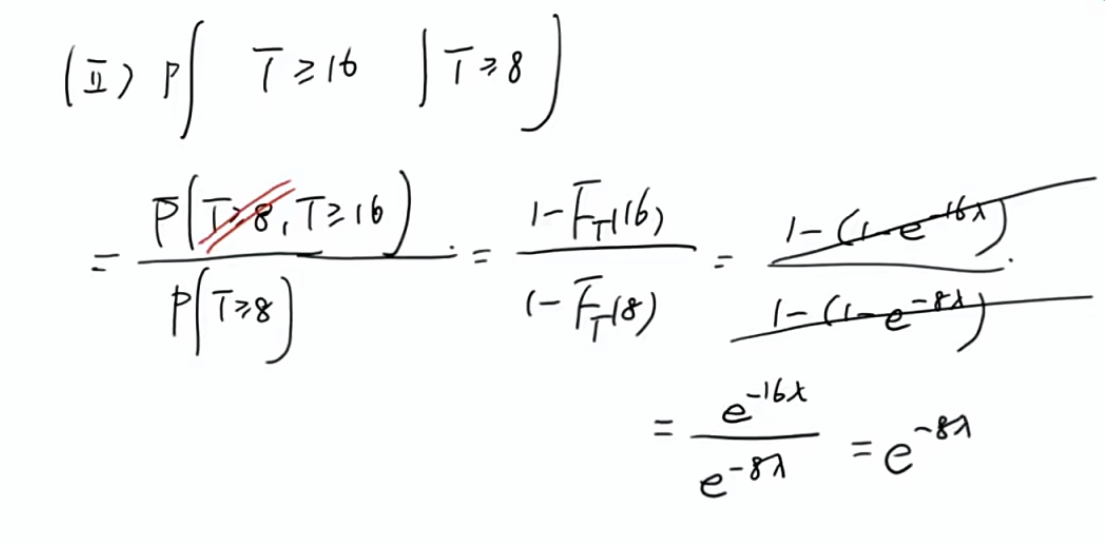 (Ⅱ) P( T ≥ 16 | T ≥ 8 )
= P(T ≥ 8, T ≥ 16) / P(T ≥ 8) = 1 - F_T(16) / 1 - F_T(8) = 1 - (1 - e^{-16λ}) / 1 - (1 - e^{-8λ})
= e^{-16λ} / e^{-8λ} = e^{-8λ}